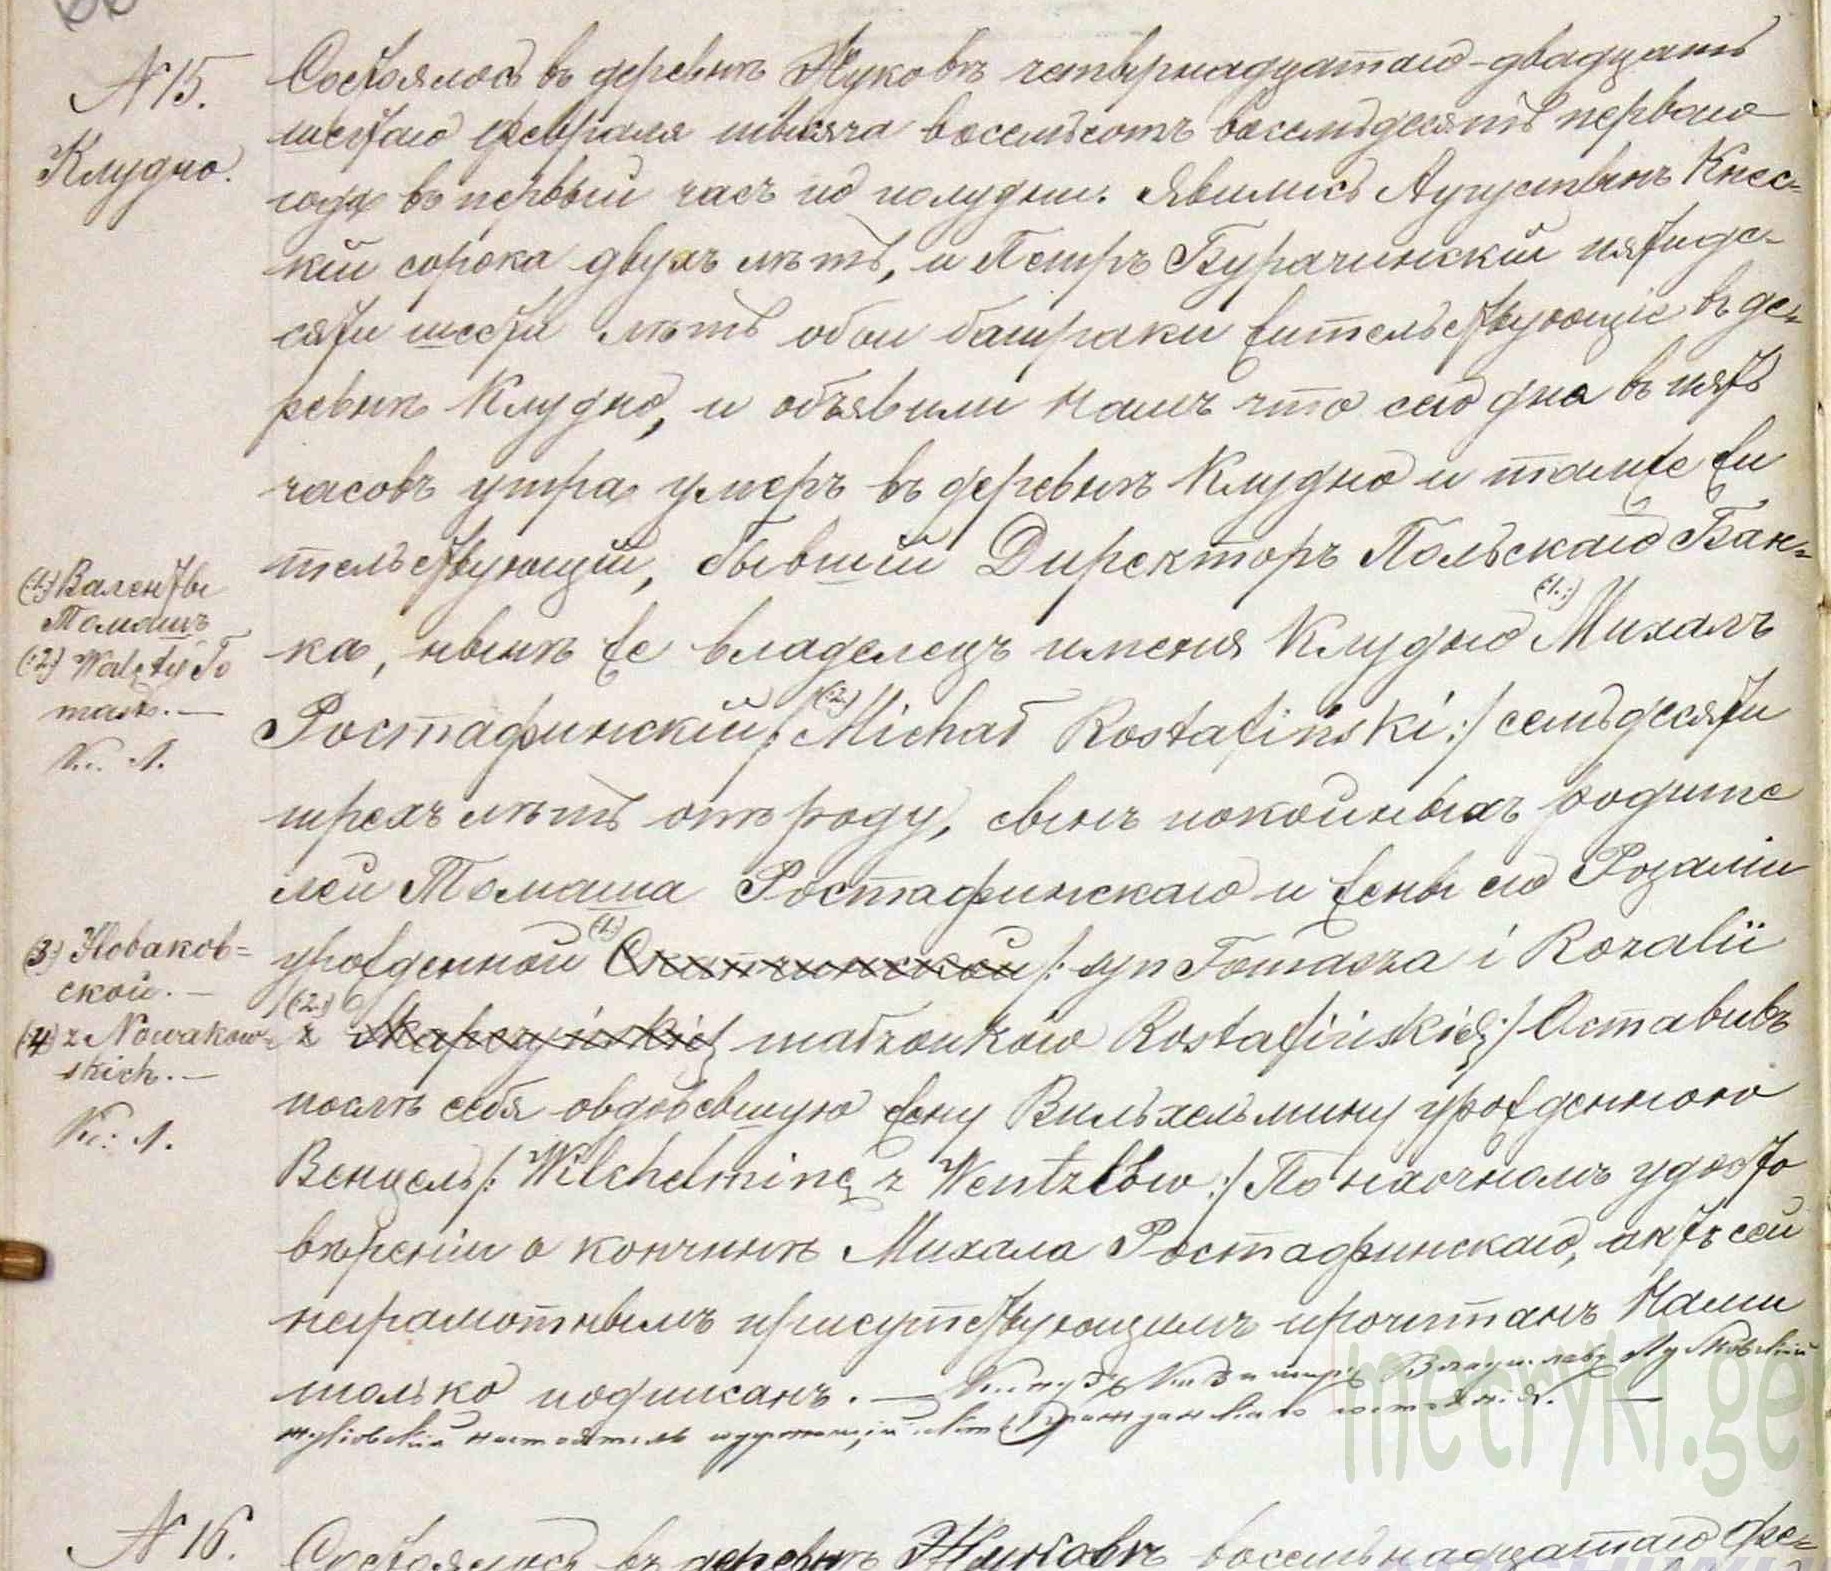 N 15.
Клудно.
Состоялось въ деревнѣ Жуковѣ четырнадцатаго - двадцать
шестаго февраля тысяча восемьсотъ восемьдесятъ перваго
года въ первый часъ по полудни. Явились Аугустынъ Кнес-
кій сорока двухъ лѣтъ, и Петръ Бурачинскій пятиде-
сяти шести лѣтъ обои батраки жительствующіе въ де-
ревнѣ Клудно, и объявили Намъ что сего дня въ пять
часовъ утра умеръ въ деревнѣ Клудно и тамже жи
тельствующій, бывшій Директоръ Польскаго Бан-
ка, нынѣ же владелецъ имения Клудно (:1.:) Михалъ
Ростафинскій /: (:2.) Michał Rostafiński :/ семьдесяти
трехъ лѣтъ отъ роду, сынъ покойныхъ родите
лей Томаша Ростафинскаго и жены его Розаліи
урожденной (1.) /: syn Tomasza i Rozalii
(:2.:) z małżonków Rostafińskich :/ Оставивъ
послѣ себя овдовевшую жену Вильхельмину урожденною
Венцель /: Wilchelminę z Wentzlów :/ По наочномъ удосто
вѣреніи о кончинѣ Михала Ростафинскаго, актъ сей
неграмотнымъ присутствующимъ прочитанъ Нами
только подписанъ. — Ксендзъ Владиславъ
Жуковскій настоятель содержащій акты гражданскаго состоянія. —
(:1.) Валенты
Томашъ
(:2.) Walenty To
masz. —
К. Л.
(3) Новаков=
ской. —
(4) z Nowakow=
skich. —
К. Л.
N 16.
Состоялось въ деревнѣ Жуковѣ восемьнадцатаго фе-
metryki.ge